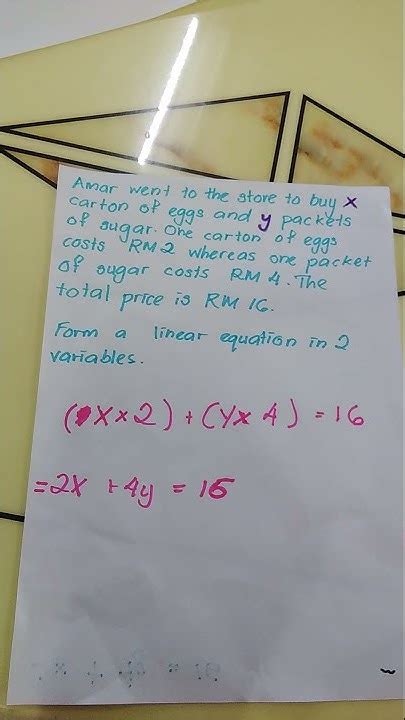 Amar went to the store to buy x
carton of eggs and y packets
of sugar. One carton of eggs
costs RM 2 whereas one packet
of sugar costs RM 4. The
total price is RM 16.
Form a linear equation in 2
variables.
(X x 2) + (Y x 4) = 16
= 2X + 4y = 16